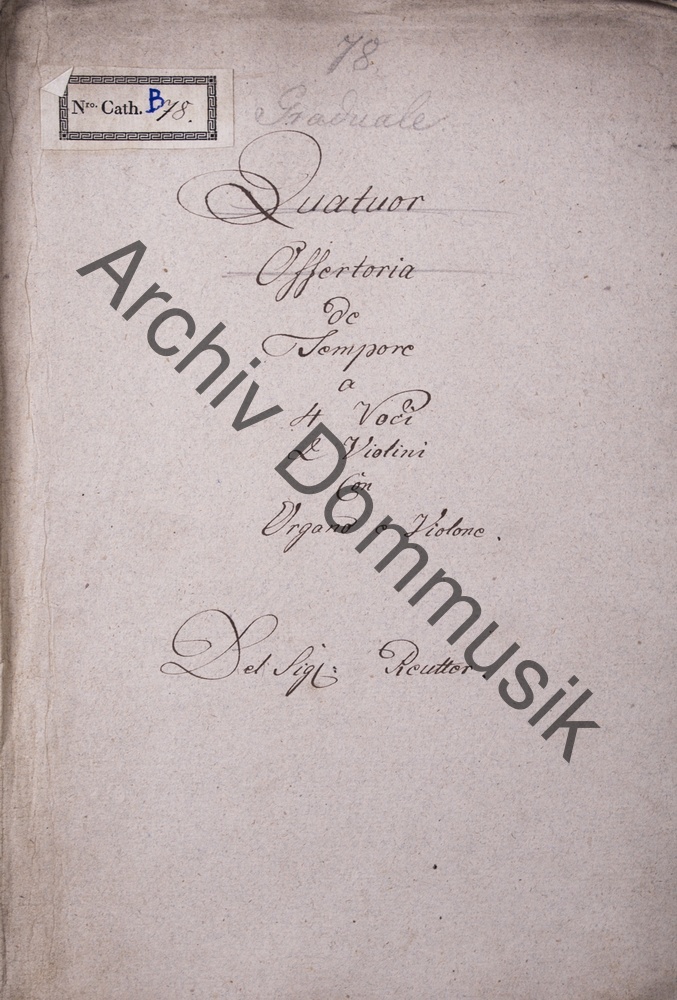 78.
Nro. Cath. B 78.
Graduale
Quatuor
Offertoria
de
Tempore
a
4 Voci
2 Violini
Con
Organo e Violone.
Del Sig: Reutter
Archiv Dommusik